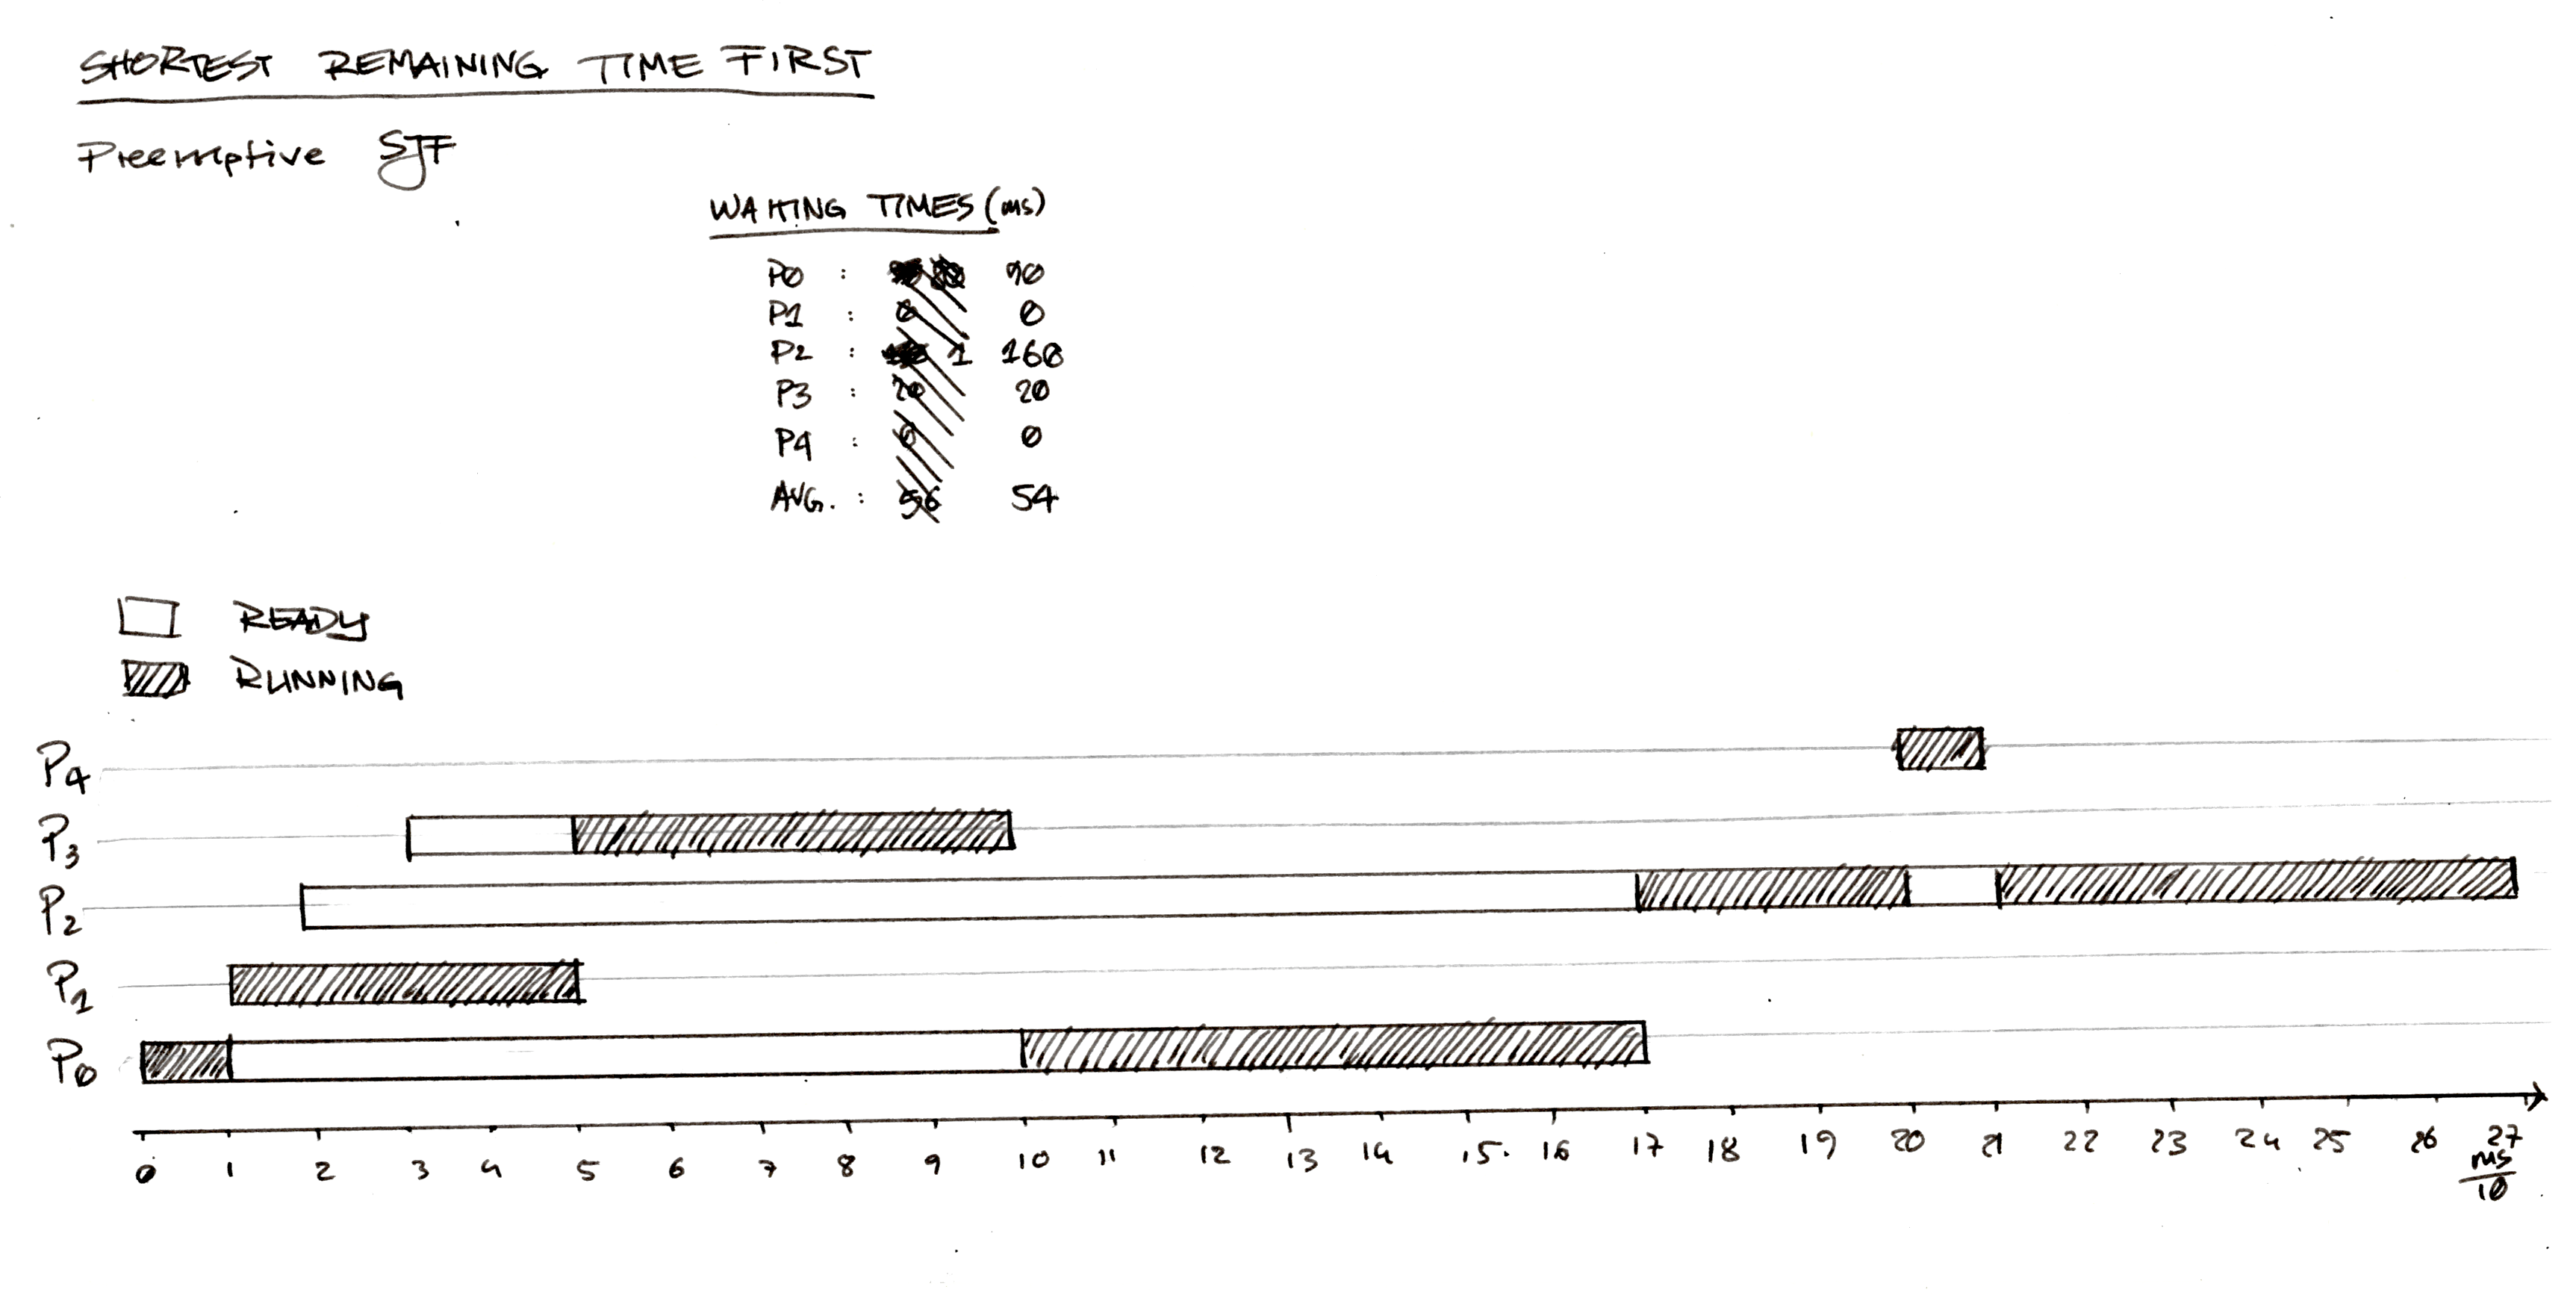 SHORTEST REMAINING TIME FIRST
Preemptive SJF
WAITING TIMES (ms)
P0 : 90
P1 : 0 0
P2 : 1 160
P3 : 20 20
P4 : 0 0
AVG. : 56 54
READY
RUNNING
P4
P3
P2
P1
P0
0 1 2 3 4 5 6 7 8 9 10 11 12 13 14 15. 16 17 18 19 20 21 22 23 24 25 26 27
ms
10